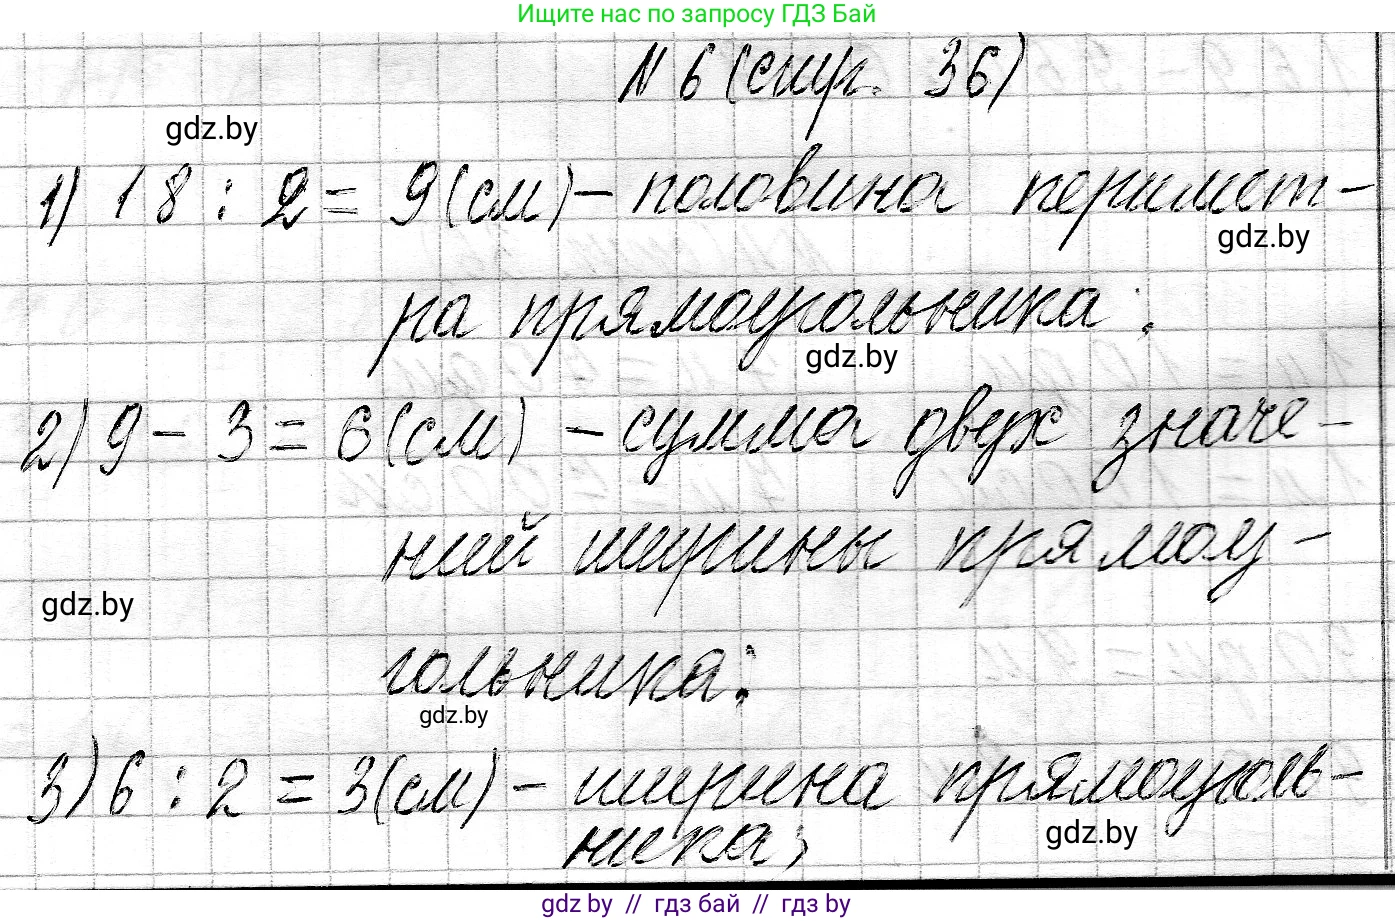 Ищите нас по запросу ГДЗ Бай
N 6 (стр. 36)
gdz.by
1) 18 : 2 = 9 (см) - половина перимет-
gdz.by
ра прямоугольника;
gdz.by
2) 9 - 3 = 6 (см) - сумма двух значе-
ний ширины прямоу-
gdz.by
гольника;
gdz.by
3) 6 : 2 = 3 (см) - ширина прямоуголь-
gdz.by
ника;
gdz by // гдз бай // гдз by